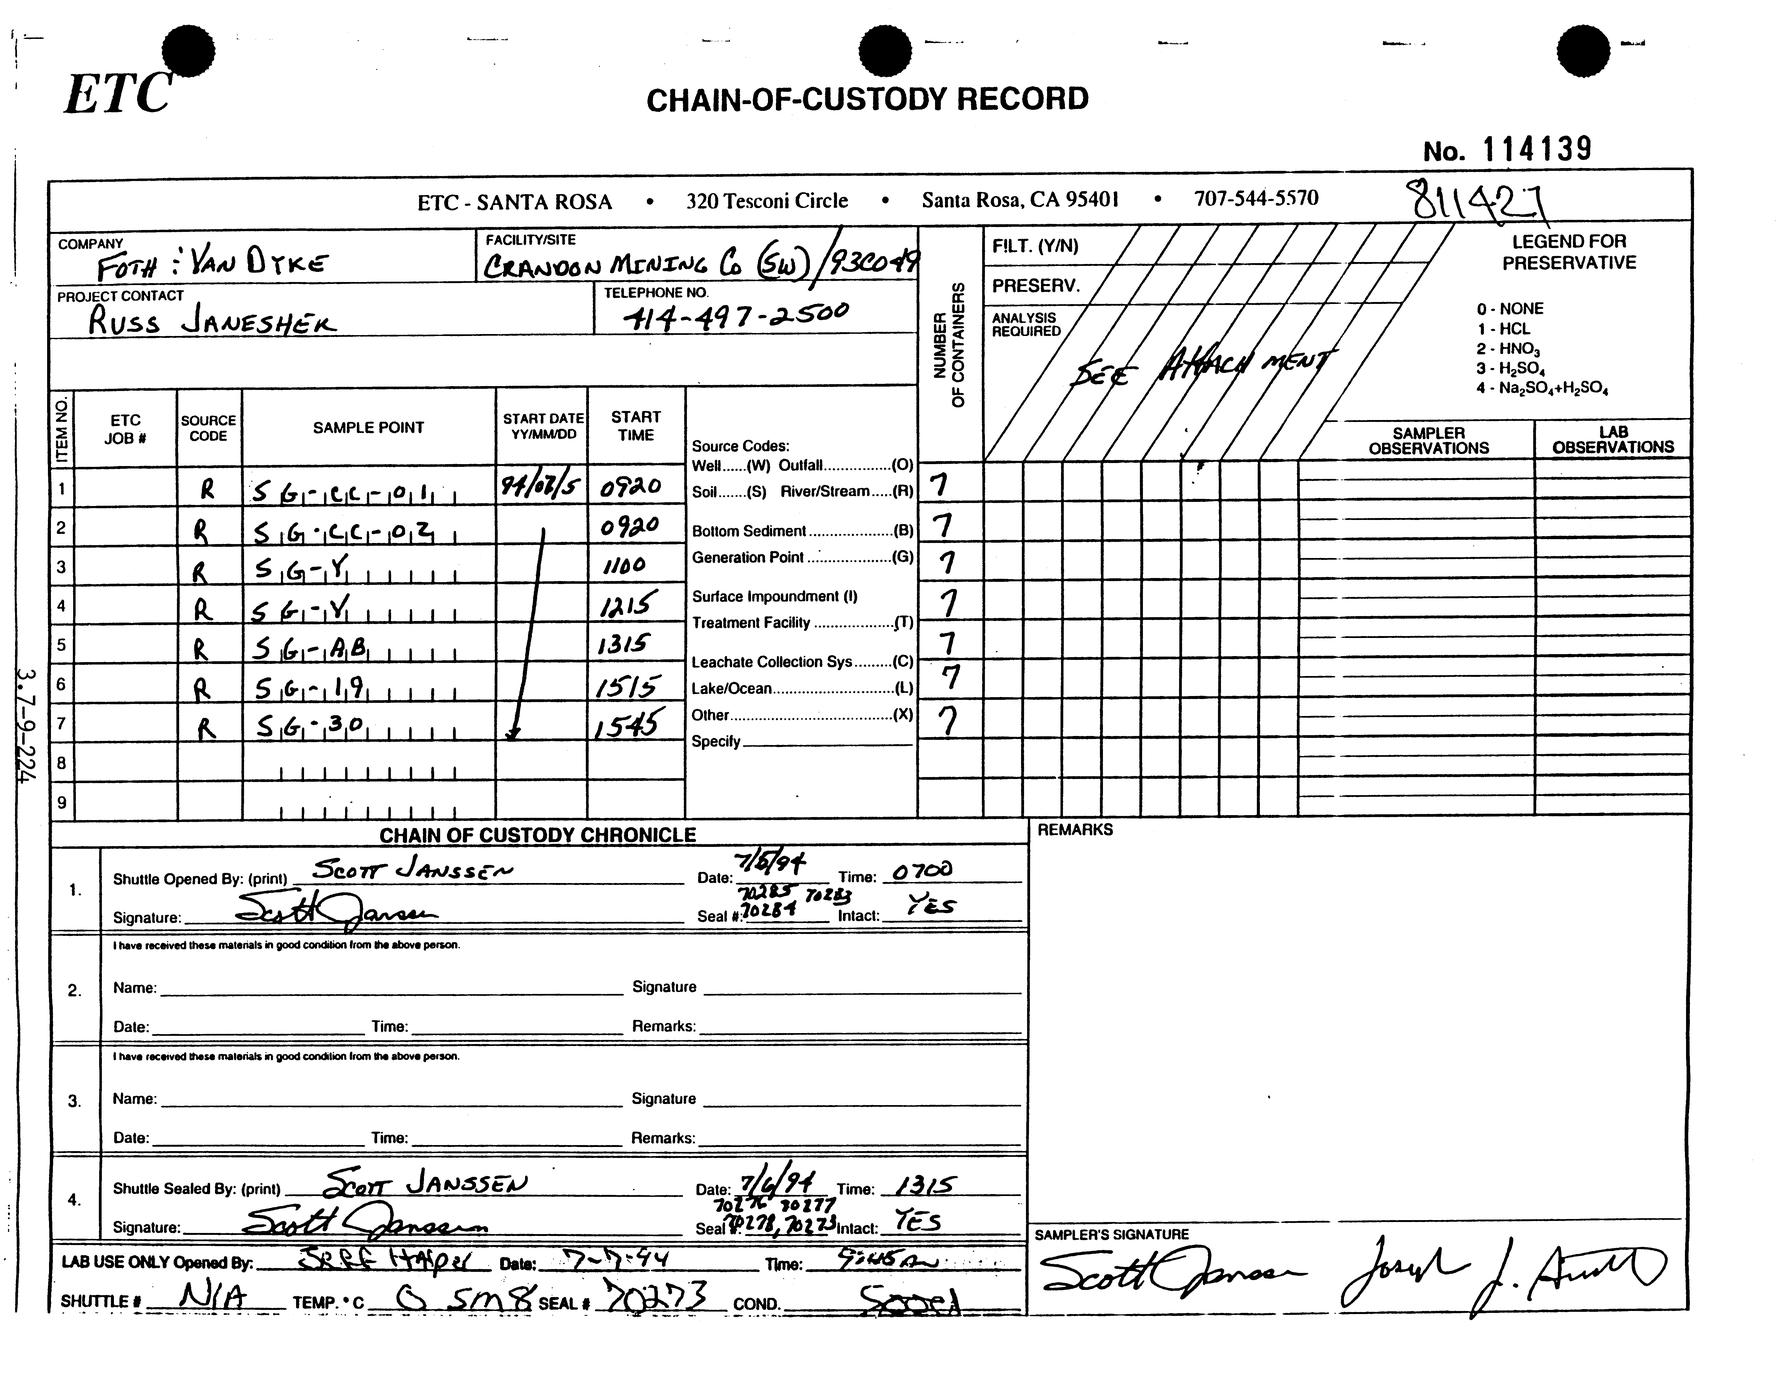 ETC
CHAIN-OF-CUSTODY RECORD
No. 114139
ETC - SANTA ROSA • 320 Tesconi Circle • Santa Rosa, CA 95401 • 707-544-5570
811427
COMPANY
FOTH : VAN DYKE
FACILITY/SITE
CRANDON MINING CO (SW) /93C049
PROJECT CONTACT
RUSS JANESHEK
TELEPHONE NO.
414-497-2500
NUMBER OF CONTAINERS
FILT. (Y/N)
PRESERV.
ANALYSIS REQUIRED
SEE ATTACHMENT
LEGEND FOR PRESERVATIVE
0 - NONE
1 - HCL
2 - HNO₃
3 - H₂SO₄
4 - Na₂SO₄+H₂SO₄
SAMPLER OBSERVATIONS
LAB OBSERVATIONS
ITEM NO. ETC JOB # SOURCE CODE SAMPLE POINT START DATE YY/MM/DD START TIME
1 R SG-CC-01 94/07/5 0920 7
2 R SG-CC-02 0920 7
3 R SG-Y 1100 7
4 R SG-V 1215 7
5 R SG-AB 1315 7
6 R SG-19 1515 7
7 R SG-30 1545 7
8
9
Source Codes:
Well......(W) Outfall...............(O)
Soil.......(S) River/Stream.....(R)
Bottom Sediment.....................(B)
Generation Point.....................(G)
Surface Impoundment (I)
Treatment Facility...................(T)
Leachate Collection Sys.........(C)
Lake/Ocean..............................(L)
Other.........................................(X)
Specify
CHAIN OF CUSTODY CHRONICLE
REMARKS
1.
Shuttle Opened By: (print) SCOTT JANSSEN Date: 7/5/94 Time: 0700
Signature: Scott Janssen Seal #: 70285 70283 70284 Intact: YES
I have received these materials in good condition from the above person.
2.
Name: Signature
Date: Time: Remarks:
I have received these materials in good condition from the above person.
3.
Name: Signature
Date: Time: Remarks:
4.
Shuttle Sealed By: (print) SCOTT JANSSEN Date: 7/6/94 Time: 1315
Signature: Scott Janssen Seal #: 70276 70277 70278, 70273 Intact: YES
LAB USE ONLY Opened By: Jeff Date: 7-7-94 Time: 9:45
SHUTTLE # N/A TEMP. °C SEAL # 70273 COND. Good
SAMPLER'S SIGNATURE
Scott Janssen Joseph J.
3.7-9-224